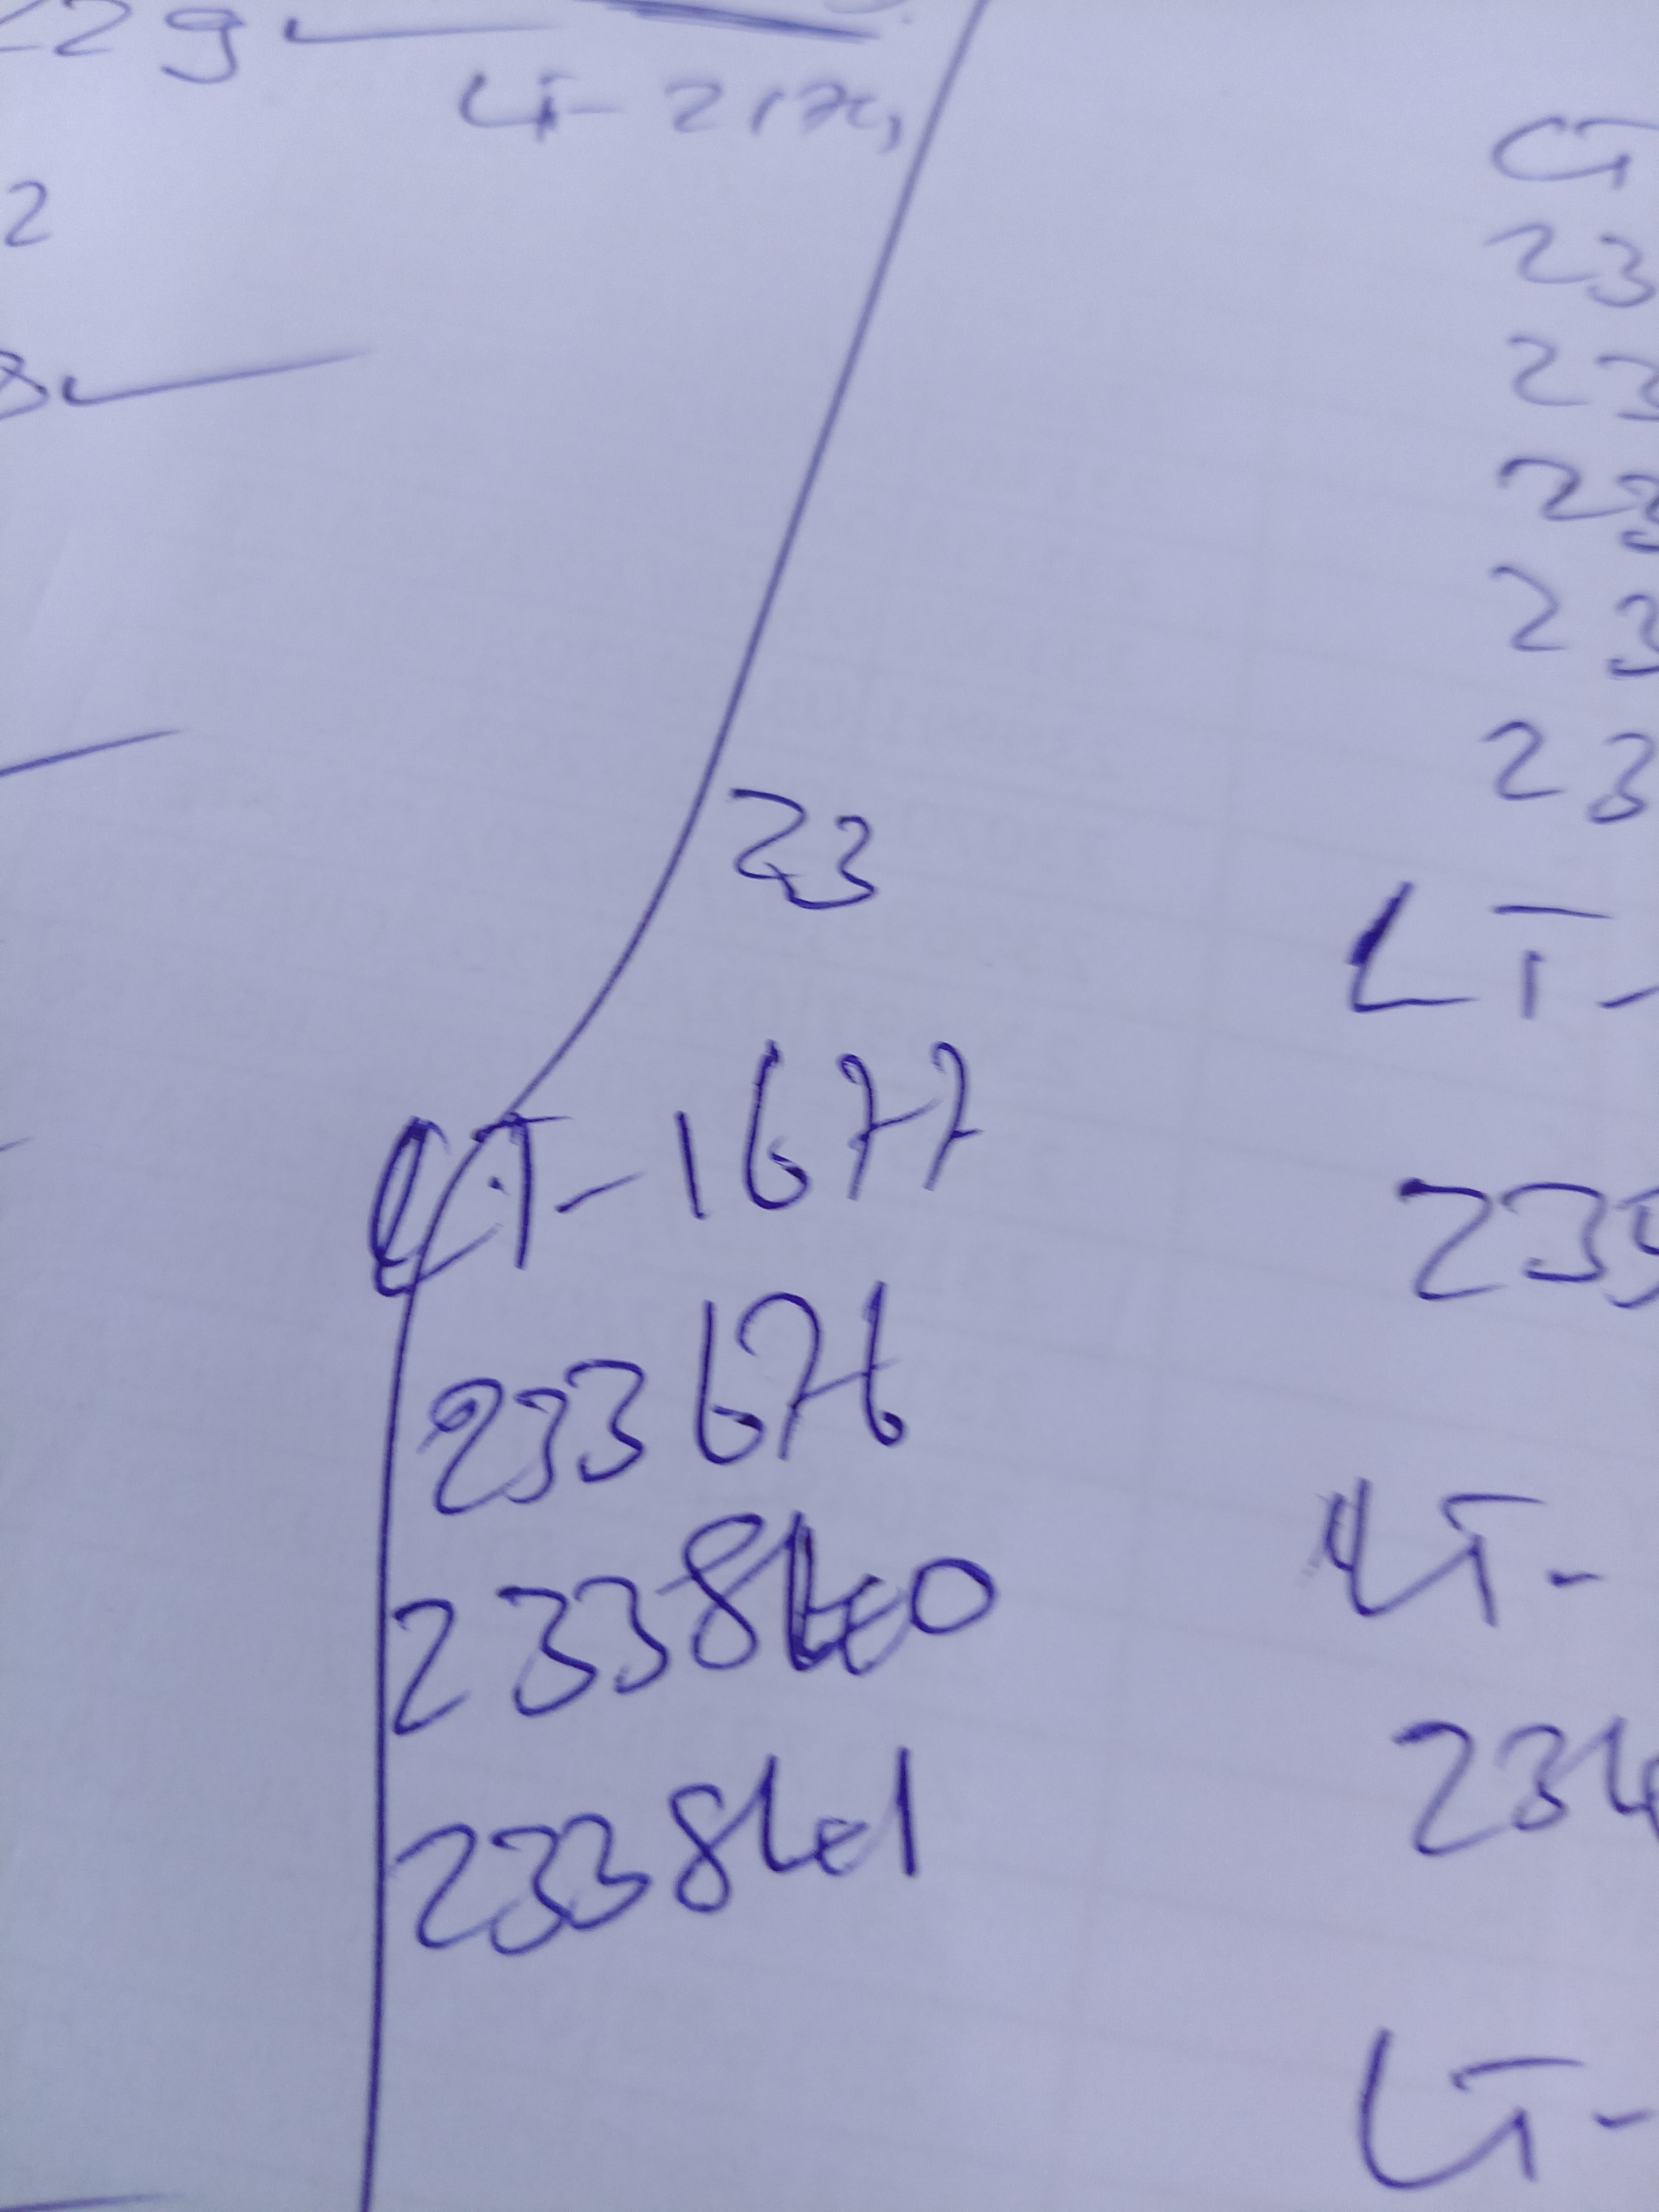 229
LT-
2
23
LT-1677
233676
233840
233841
CT
23
23
23
23
23
LT-
235
LT-
234
LT-